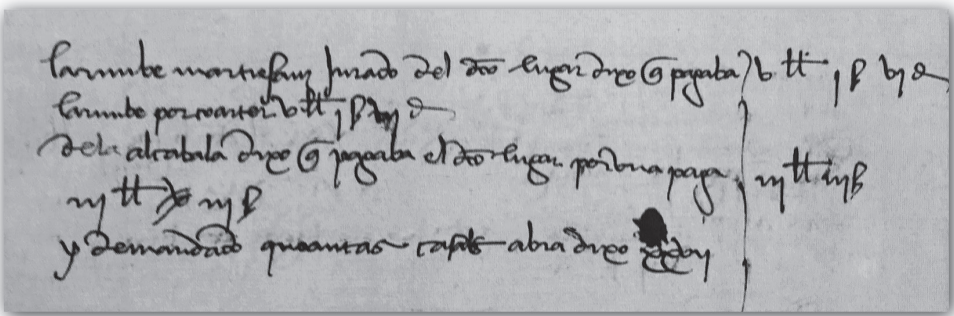 larunbe martie sanz Jurado del dco lugar dixo q pagaba b lb j ß bj d
larunbe por coarter b lb j ß bj d
dela alcabala dixo q pagaba el dco lugar por vna paga iij lb iij ß
iij lb iij ß
y demandado quoantas casas abia dixo xxbij